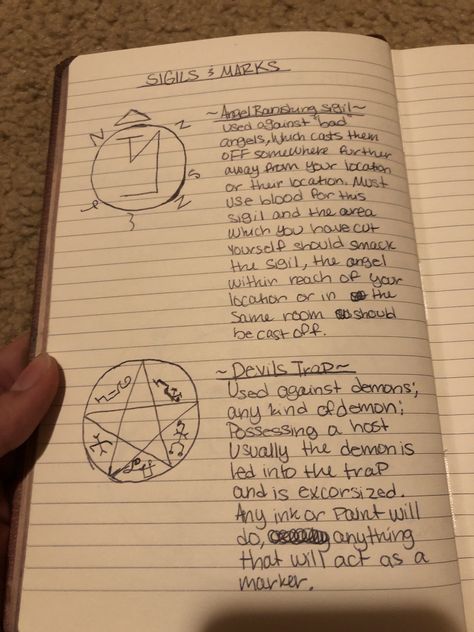 SIGILS & MARKS
~Angel Banishing Sigil~
used against bad
angels, which casts them
OFF somewhere further
away from your location
or their location. Must
use blood for this
sigil and the area
which you have cut
yourself should smack
the sigil, the angel
within reach of your
location or in the
same room should
be cast off.
~Devils Trap~
Used against demons;
any kind of demon;
Possessing a host
Usually the demon is
led into the trap
and is excorsized.
Any ink or Paint will
do, anything
that will act as a
marker.